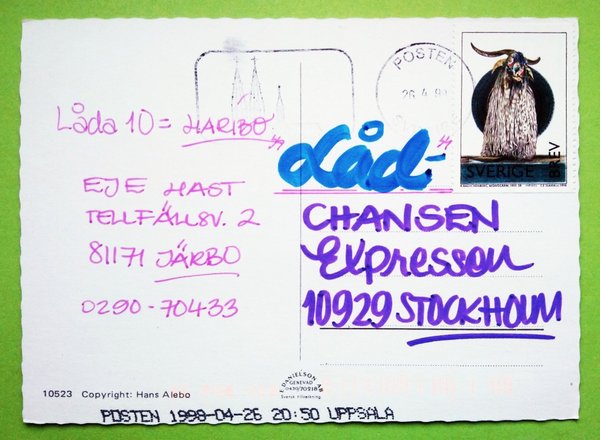 Låda 10 = HARIBO
EJE HAST
TELLFÄLLSV. 2
81171 JÄRBO
0290-70433
"Låd-"
CHANSEN
Expressen
10929 STOCKHOLM
POSTEN
26.4.98
SVERIGE BREV
L DANIELSON AB
GENEVAD
0430/70218
Svensk tillverkning
10523 Copyright: Hans Alebo
POSTEN 1998-04-26 20:50 UPPSALA